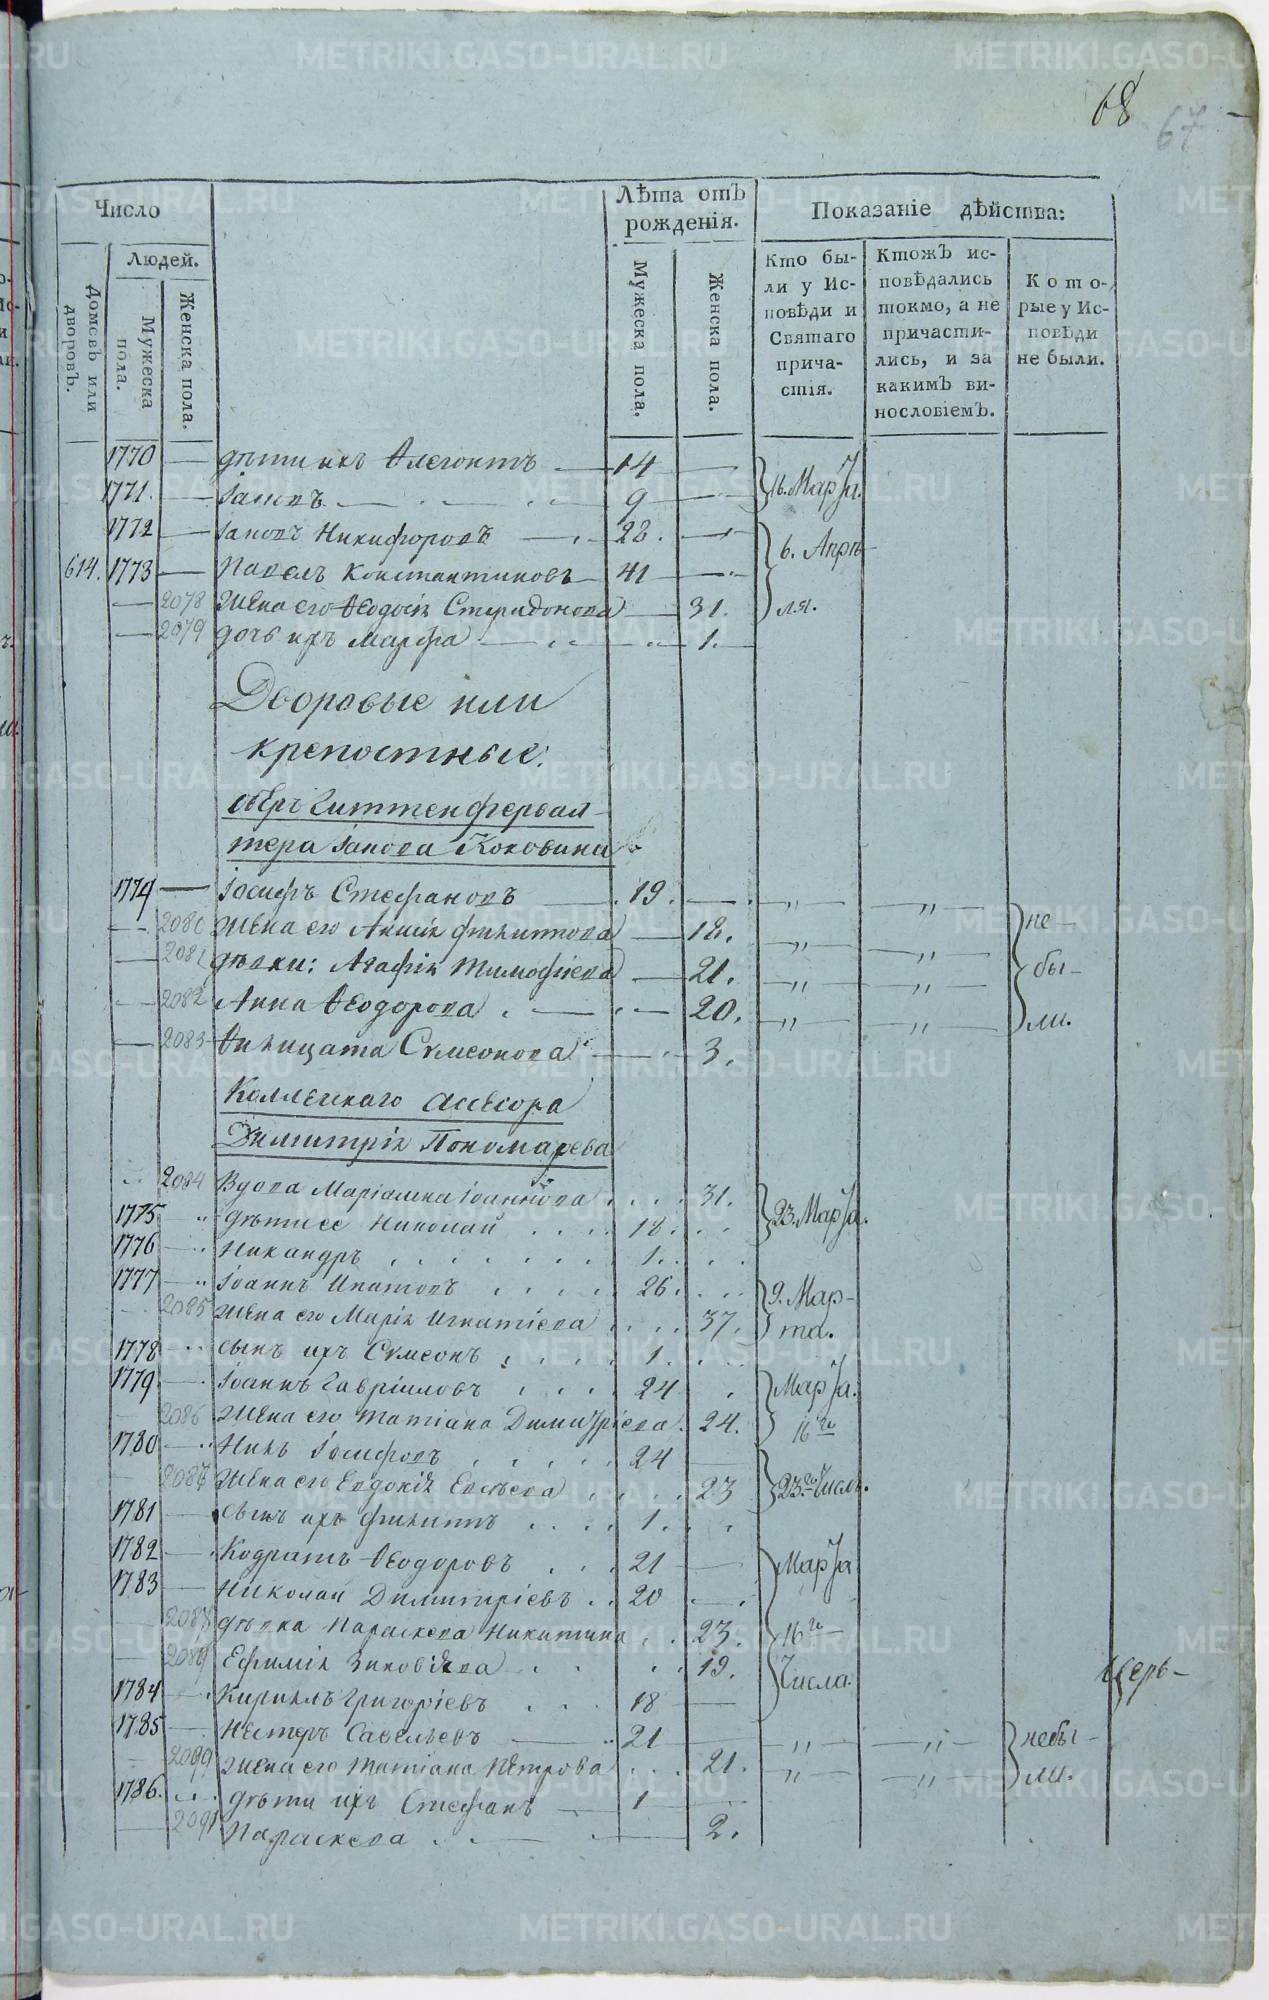 68
67
Число
Лѣта отъ рожденія.
Показаніе дѣйства:
Людей.
Домовъ или дворовъ.
Мужеска пола.
Женска пола.
Мужеска пола.
Женска пола.
Кто были у Исповѣди и Святаго причастія.
Ктожъ исповѣдались токмо, а не причастились, и за какимъ винословіемъ.
Которые у Исповѣди не были.
1770 — дѣти ихъ Ѳлегонтъ — 14 — 16. Марта.
1771. — Іаковъ — 9 —
1772 — Іаковъ Никифоровъ — 23. — 6. Апрѣ-
614. 1773 — Павелъ Константиновъ — 41 —
— 2078 Жена его Ѳеодосія Спиридонова — 31. ля.
— 2079 дочь ихъ Марфа — 1.
Дворовые или
крепостные:
Оберъ Гиттенфервал-
тера Іакова Коковина
1774 — Іосифъ Стефановъ — 19. — „ — „ — не-
— 2080 Жена его Анисія Филиппова — 18. — „ —
— 2081 дѣвки: Агафія Тимофіева — 21. — „ — „ — бы-
— 2082 Анна Ѳеодорова — 20. — „ — „ — ли.
— 2083 Симеонова — 3.
Коллежкаго Ассесора
Димитрія Пономарева
2084 Вдова Маріамна Іоаннова 31. 23. Марта.
1775 — дѣти ее Николай 18.
1776 — Никандръ 1.
1777 — Іоаннъ Ипатовъ 26. 9. Мар-
— 2085 Жена его Марія Игнатіева 37. та.
1778 — сынъ ихъ Сѵмеонъ 1.
1779. — Іоаннъ Гавріиловъ 24 Марта.
— 2086 Жена его Татіана Димитріева 24. 16го
1780 — Іосифовъ 24 —
— 2087 Жена его Евдокія 23 23.го Числ.
1781 — сынъ ихъ Филиппъ 1.
1782 — Кодратъ Ѳеодоровъ 21 — Марта
1783 — Николай Димитріевъ 20 —
— 2088 дѣвка Параскева Никитина 23. 16го
— 2089 Ефимія Зиновіева 19. Числа.
1784 — Кириллъ Григоріевъ 18 —
1785 — Нестеръ Савельевъ — 21 — „ — „ — небы-
— 2090 Жена его Татіана Петрова 21. — „ — „ — ли.
1786. дѣти ихъ Стефанъ — 1 —
— 2091 Параскева — 2.
Церь-
METRIKI.GASO-URAL.RU